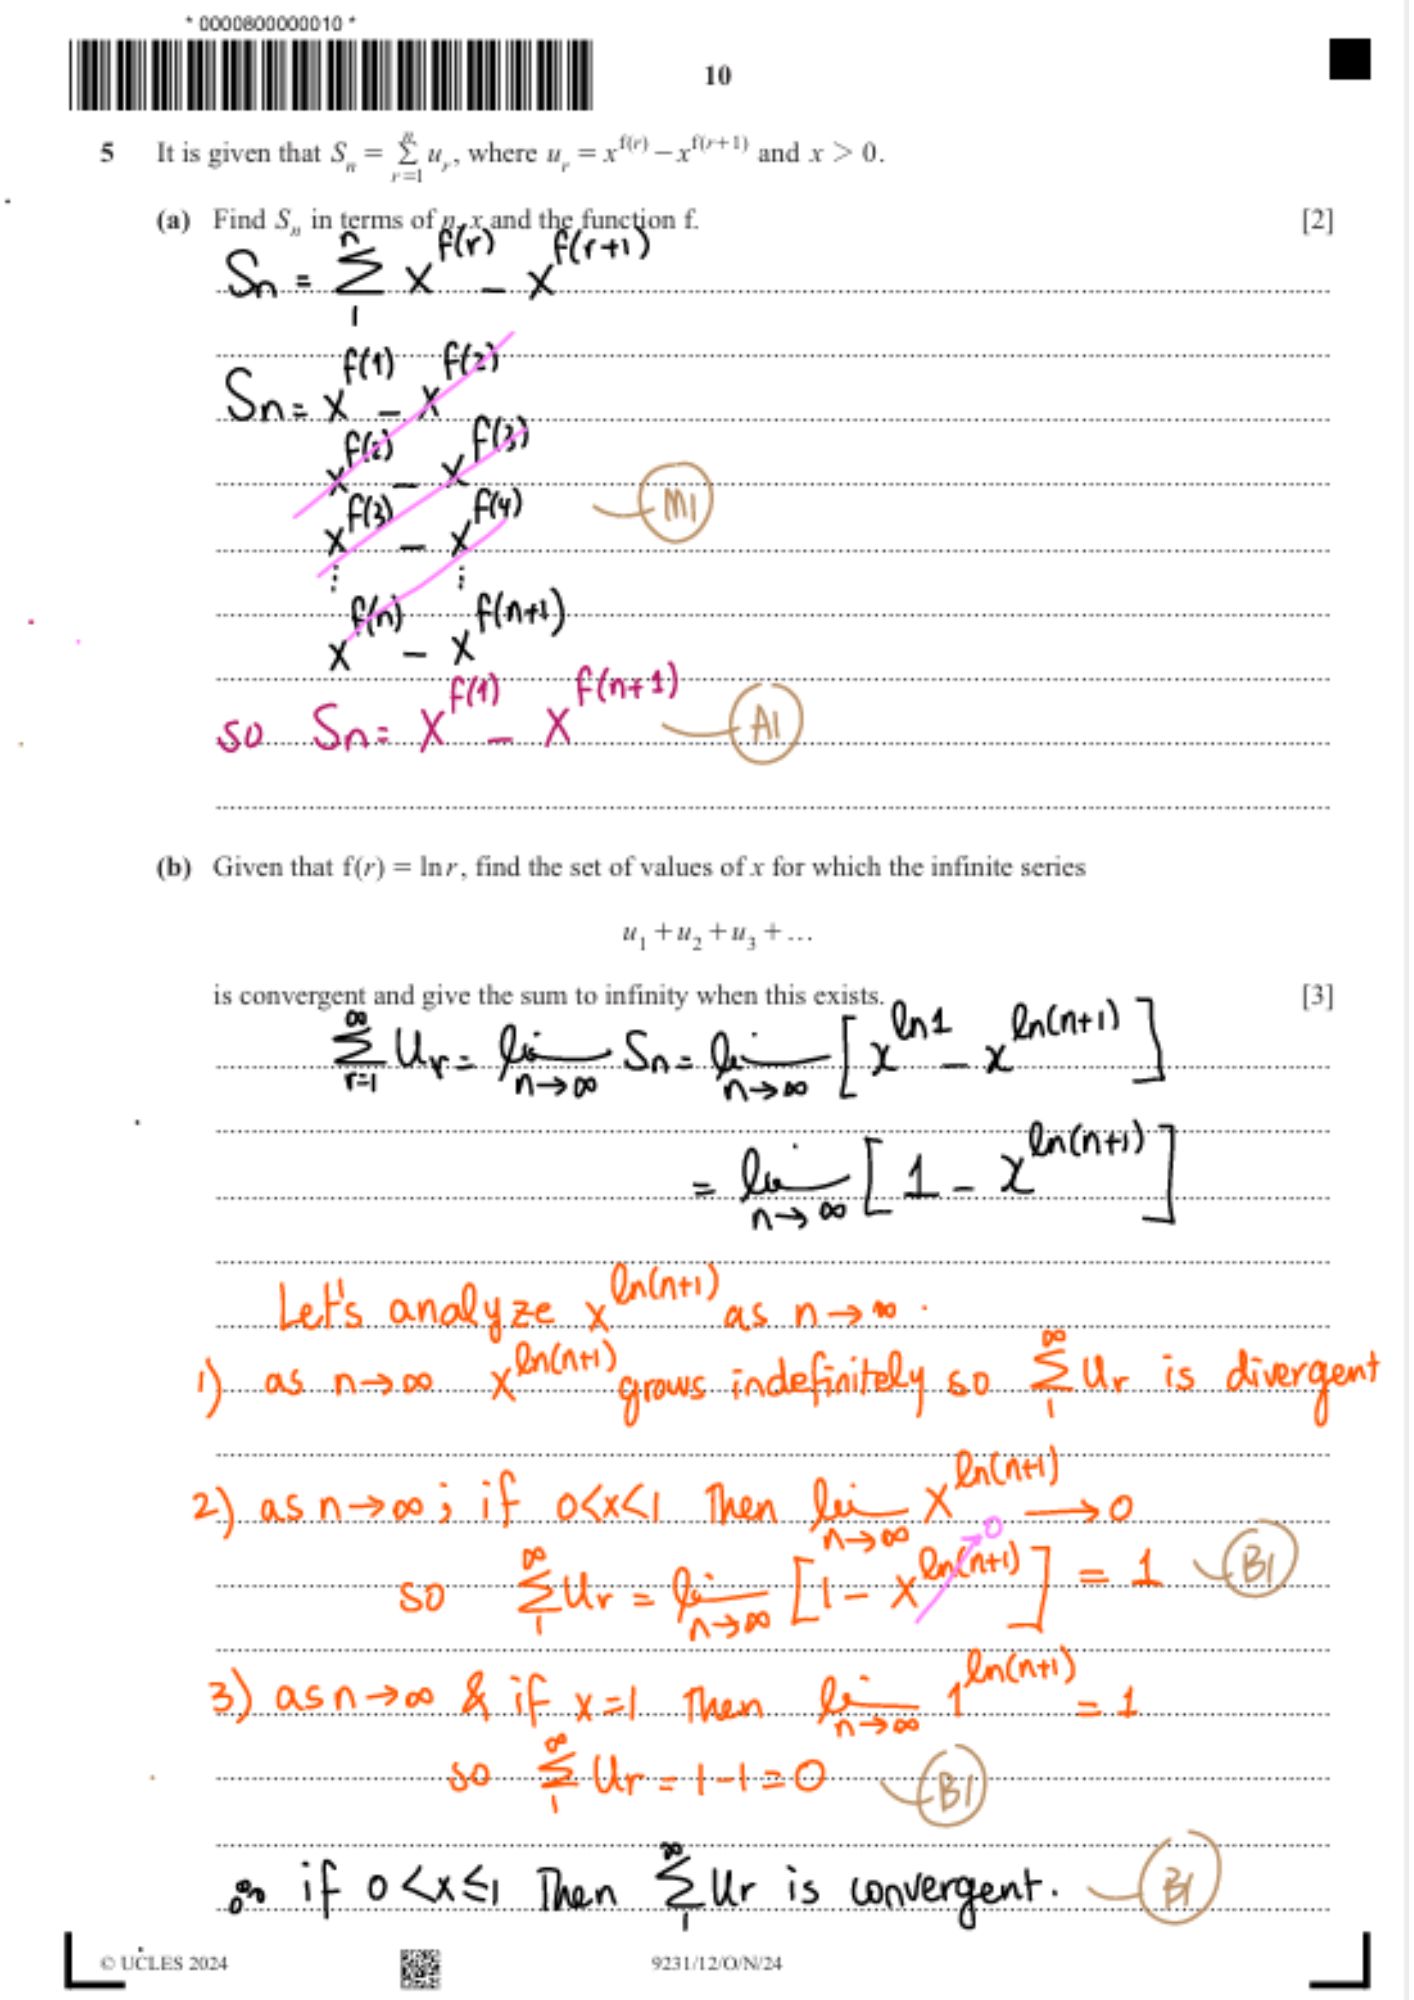 * 0000800000010 *
10
5 It is given that Sₙ = ∑ᵣ₌₁ⁿ uᵣ, where uᵣ = x^{f(r)} − x^{f(r+1)} and x > 0.
(a) Find Sₙ in terms of n, x and the function f. [2]
Sn = ∑₁ⁿ x^{f(r)} − x^{f(r+1)}
Sn = x^{f(1)} − x^{f(2)}
x^{f(2)} − x^{f(3)}
x^{f(3)} − x^{f(4)} M1
⋮ ⋮
x^{f(n)} − x^{f(n+1)}
so Sn = x^{f(1)} − x^{f(n+1)} A1
(b) Given that f(r) = ln r, find the set of values of x for which the infinite series
u₁ + u₂ + u₃ + ...
is convergent and give the sum to infinity when this exists. [3]
∑_{r=1}^{∞} Ur = lim_{n→∞} Sn = lim_{n→∞} [x^{ln 1} − x^{ln(n+1)}]
= lim_{n→∞} [1 − x^{ln(n+1)}]
Let's analyze x^{ln(n+1)} as n→∞.
1) as n→∞ x^{ln(n+1)} grows indefinitely so ∑₁^∞ Ur is divergent
2) as n→∞ ; if 0<x<1 Then lim_{n→∞} x^{ln(n+1)} ⟶ 0
so ∑₁^∞ Ur = lim_{n→∞} [1 − x^{ln(n+1)}]→0 = 1 B1
3) as n→∞ & if x=1 Then lim_{n→∞} 1^{ln(n+1)} = 1
so ∑₁^∞ Ur = 1−1=0 B1
∴ if 0<x≤1 Then ∑₁^∞ Ur is convergent. B1
© UCLES 2024 9231/12/O/N/24